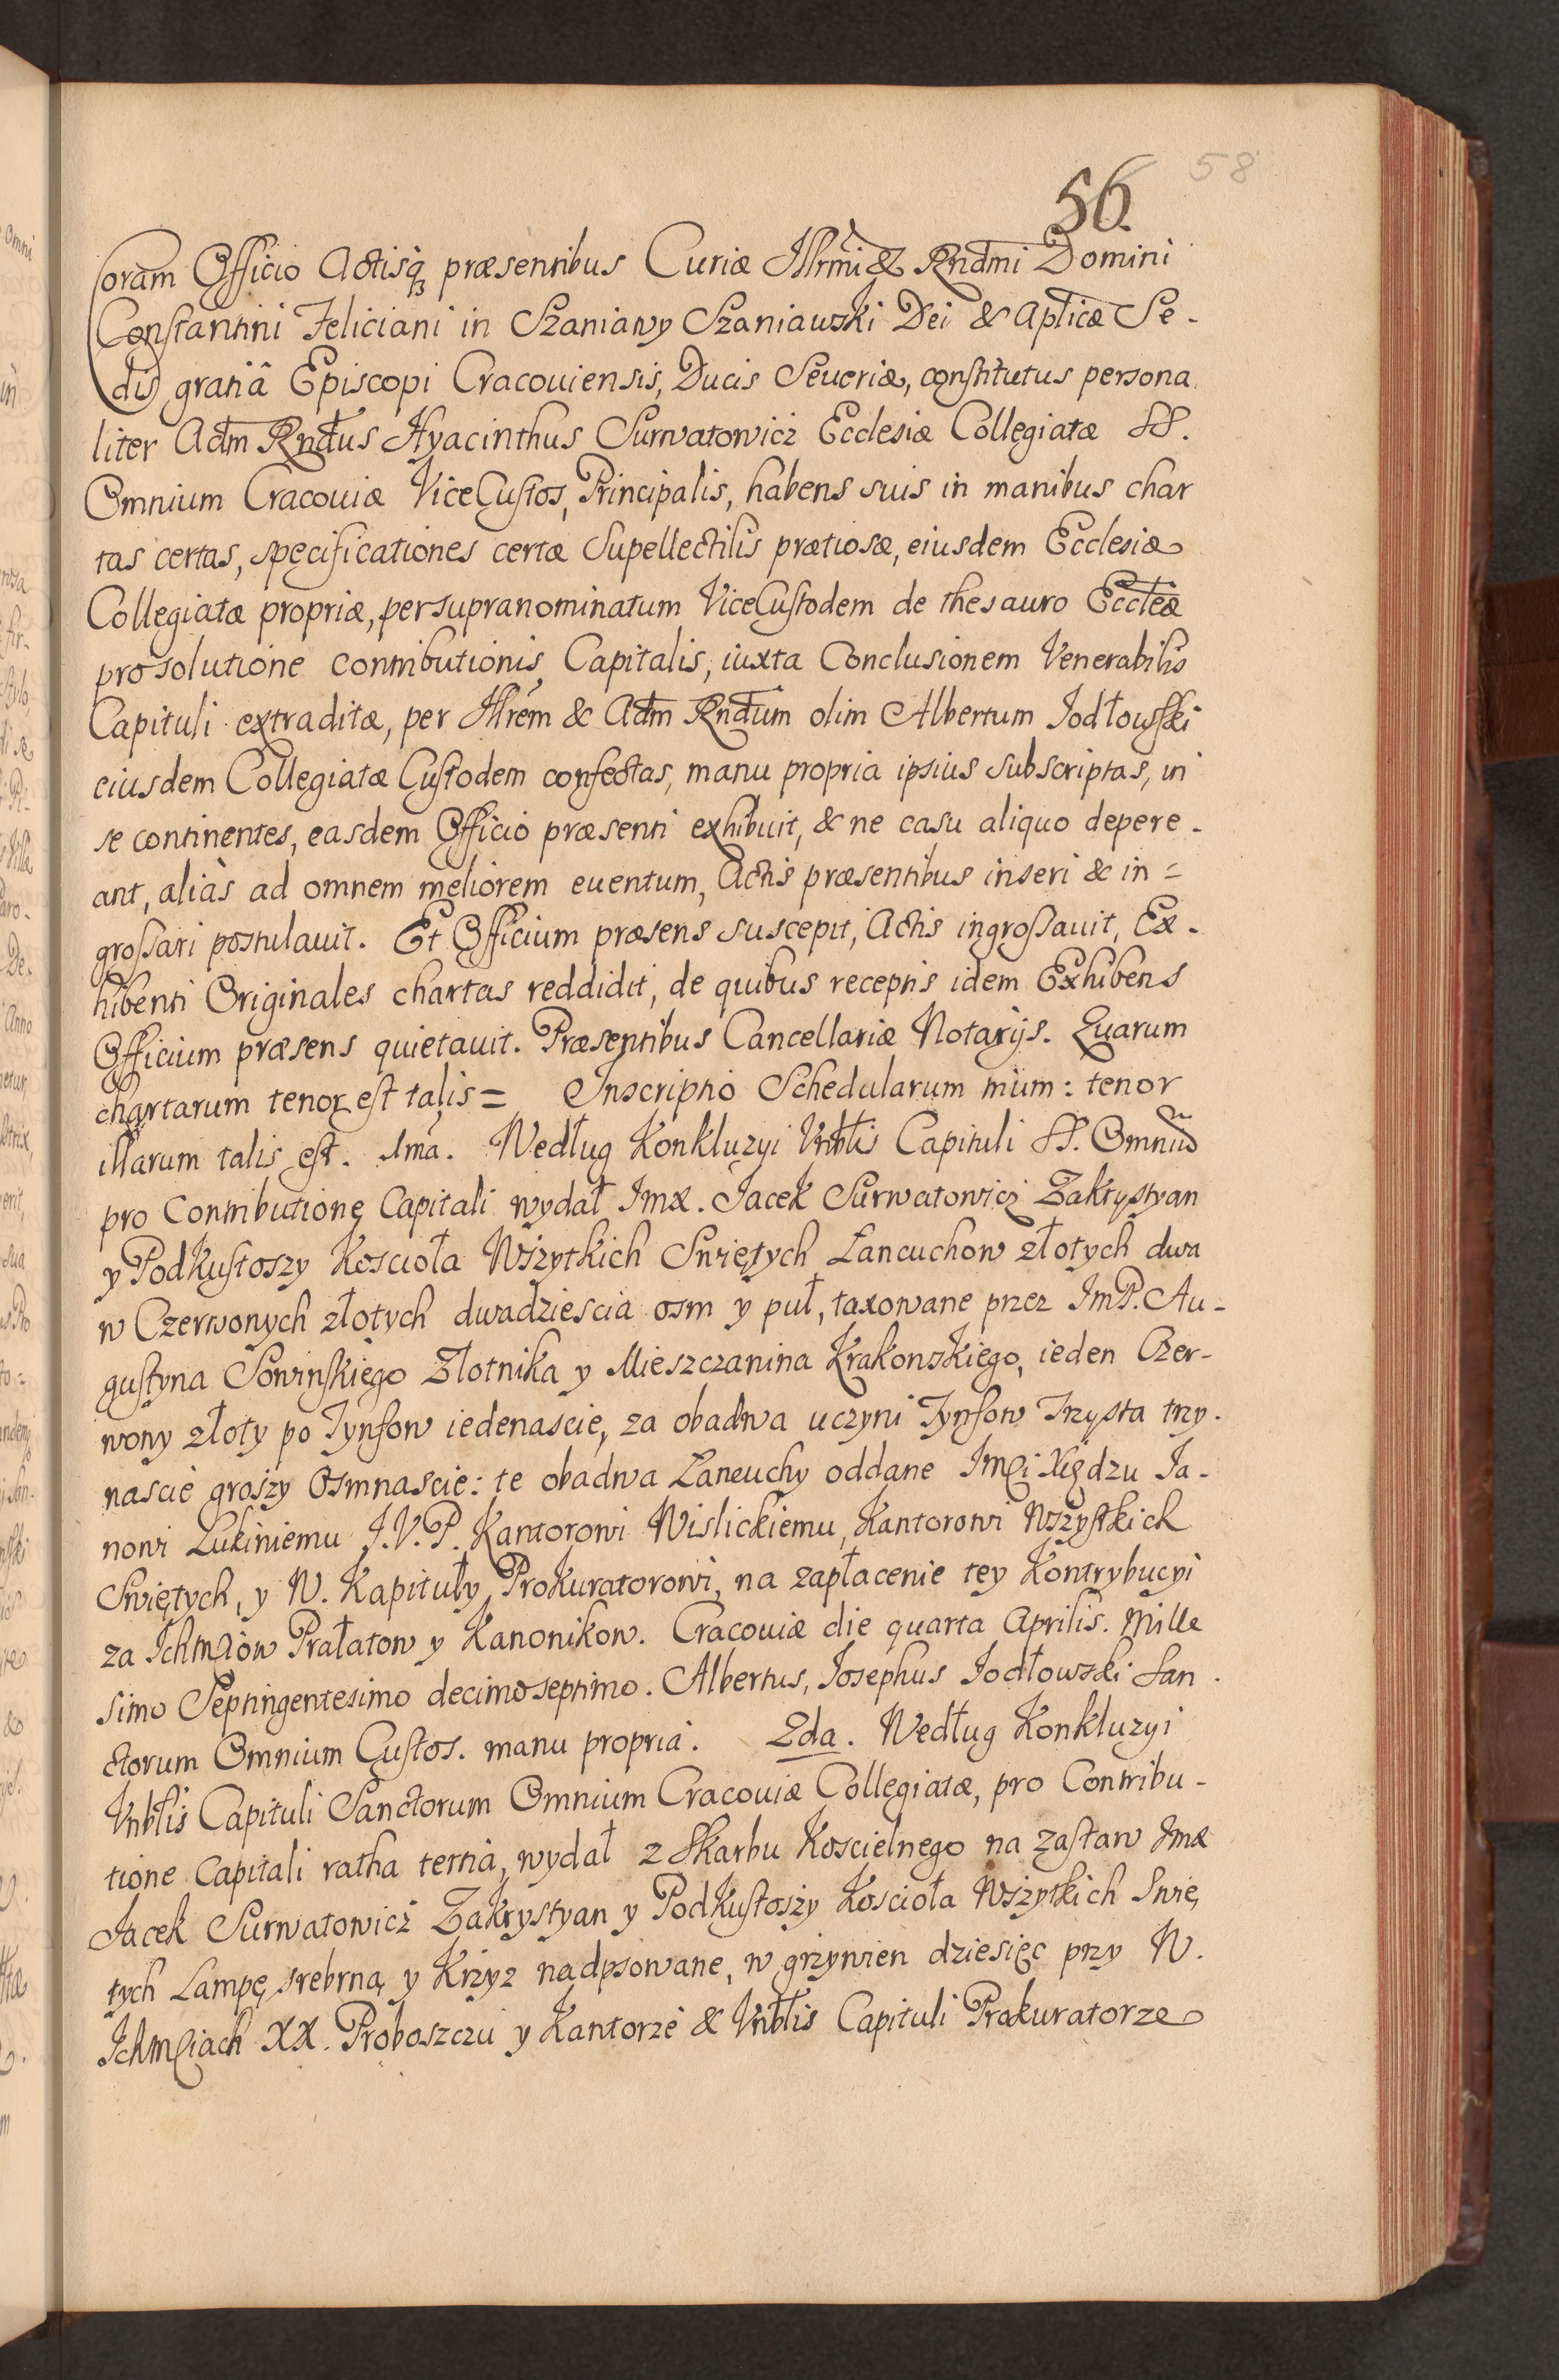 56. 58
Coram Officio Actisq₃ præsentibus Curiæ Illrmi & Rndmi Domini
Constantini Feliciani in Szaniawy Szaniawski Dei & Aplicæ Se-
dis gratiâ Episcopi Cracouiensis, Ducis Seueriæ, constitutus persona
liter Adm Rndus Hyacinthus Surwatowicz Ecclesiæ Collegiatæ SS.
Omnium Cracouiæ ViceCustos, Principalis, habens suis in manibus char
tas certas, specificationes certæ Supellectilis prætiosæ, eiusdem Ecclesiæ
Collegiatæ propriæ, per supranominatum ViceCustodem de thesauro Eccleæ
pro solutione contributionis Capitalis, iuxta Conclusionem Venerabilis
Capituli extraditæ, per Illrem & Adm Rndum olim Albertum Jodłowski
eiusdem Collegiatæ Custodem confectas, manu propria ipsius subscriptas, in
se continentes, easdem Officio præsenti exhibuit, & ne casu aliquo depere-
ant, aliàs ad omnem meliorem euentum, Actis præsentibus inseri & in=
grossari postulauit. Et Officium præsens suscepit, Actis ingrossauit, Ex-
hibenti Originales chartas reddidit, de quibus receptis idem Exhibens
Officium præsens quietauit. Præsentibus Cancellariæ Notarijs. Quarum
chartarum tenor est talis= Inscriptio Schedularum mûm: tenor
illarum talis est. 1ma. Według Konkluzyi Vnblis Capituli SS. Omniũ
pro Contributione Capitali wydał Imæ. Jacek Surwatowicz Zakrystyan
y Podkustoszy Koscioła Wszytkich Swiętych Lancuchow złotych dwa
w Czerwonych złotych dwadziescia osm y puł, taxowane przez ImP. Au-
gustyna Sowinskiego Złotnika y Mieszczanina Krakowskiego, ieden Czer-
wony złoty po Tynfow iedenascie, za obadwa uczyni Tynfow Trzysta trzy-
nascie groszy Osmnascie: te obadwa Łancuchy oddane Imci Xiędzu Ja-
nowi Lukiniemu J.V.P. Kantorowi Wislickiemu, Kantorowi Wszystkich
Swiętych, y W. Kapituły Prokuratorowi, na zapłacenie tey Kontrybucyi
za Ichmciow Prałatow y Kanonikow. Cracouiæ die quarta Aprilis. Mille
simo Septingentesimo decimo septimo. Albertus, Josephus Jodłowski San-
ctorum Omnium Custos. manu propria. 2da. Według Konkluzyi
Vnblis Capituli Sanctorum Omnium Cracouiæ Collegiatæ, pro Contribu-
tione Capitali ratha tertia, wydał z Skarbu Koscielnego na zastaw Imæ
Jacek Surwatowicz Zakrystyan y Podkustoszy Koscioła Wszytkich Swię
tych Lampę srebrną y Krzyz nadpsowane, w grzywien dziesięc przy W.
Ichmciach XX. Proboszczu y Kantorze & Vnblis Capituli Prokuratorze